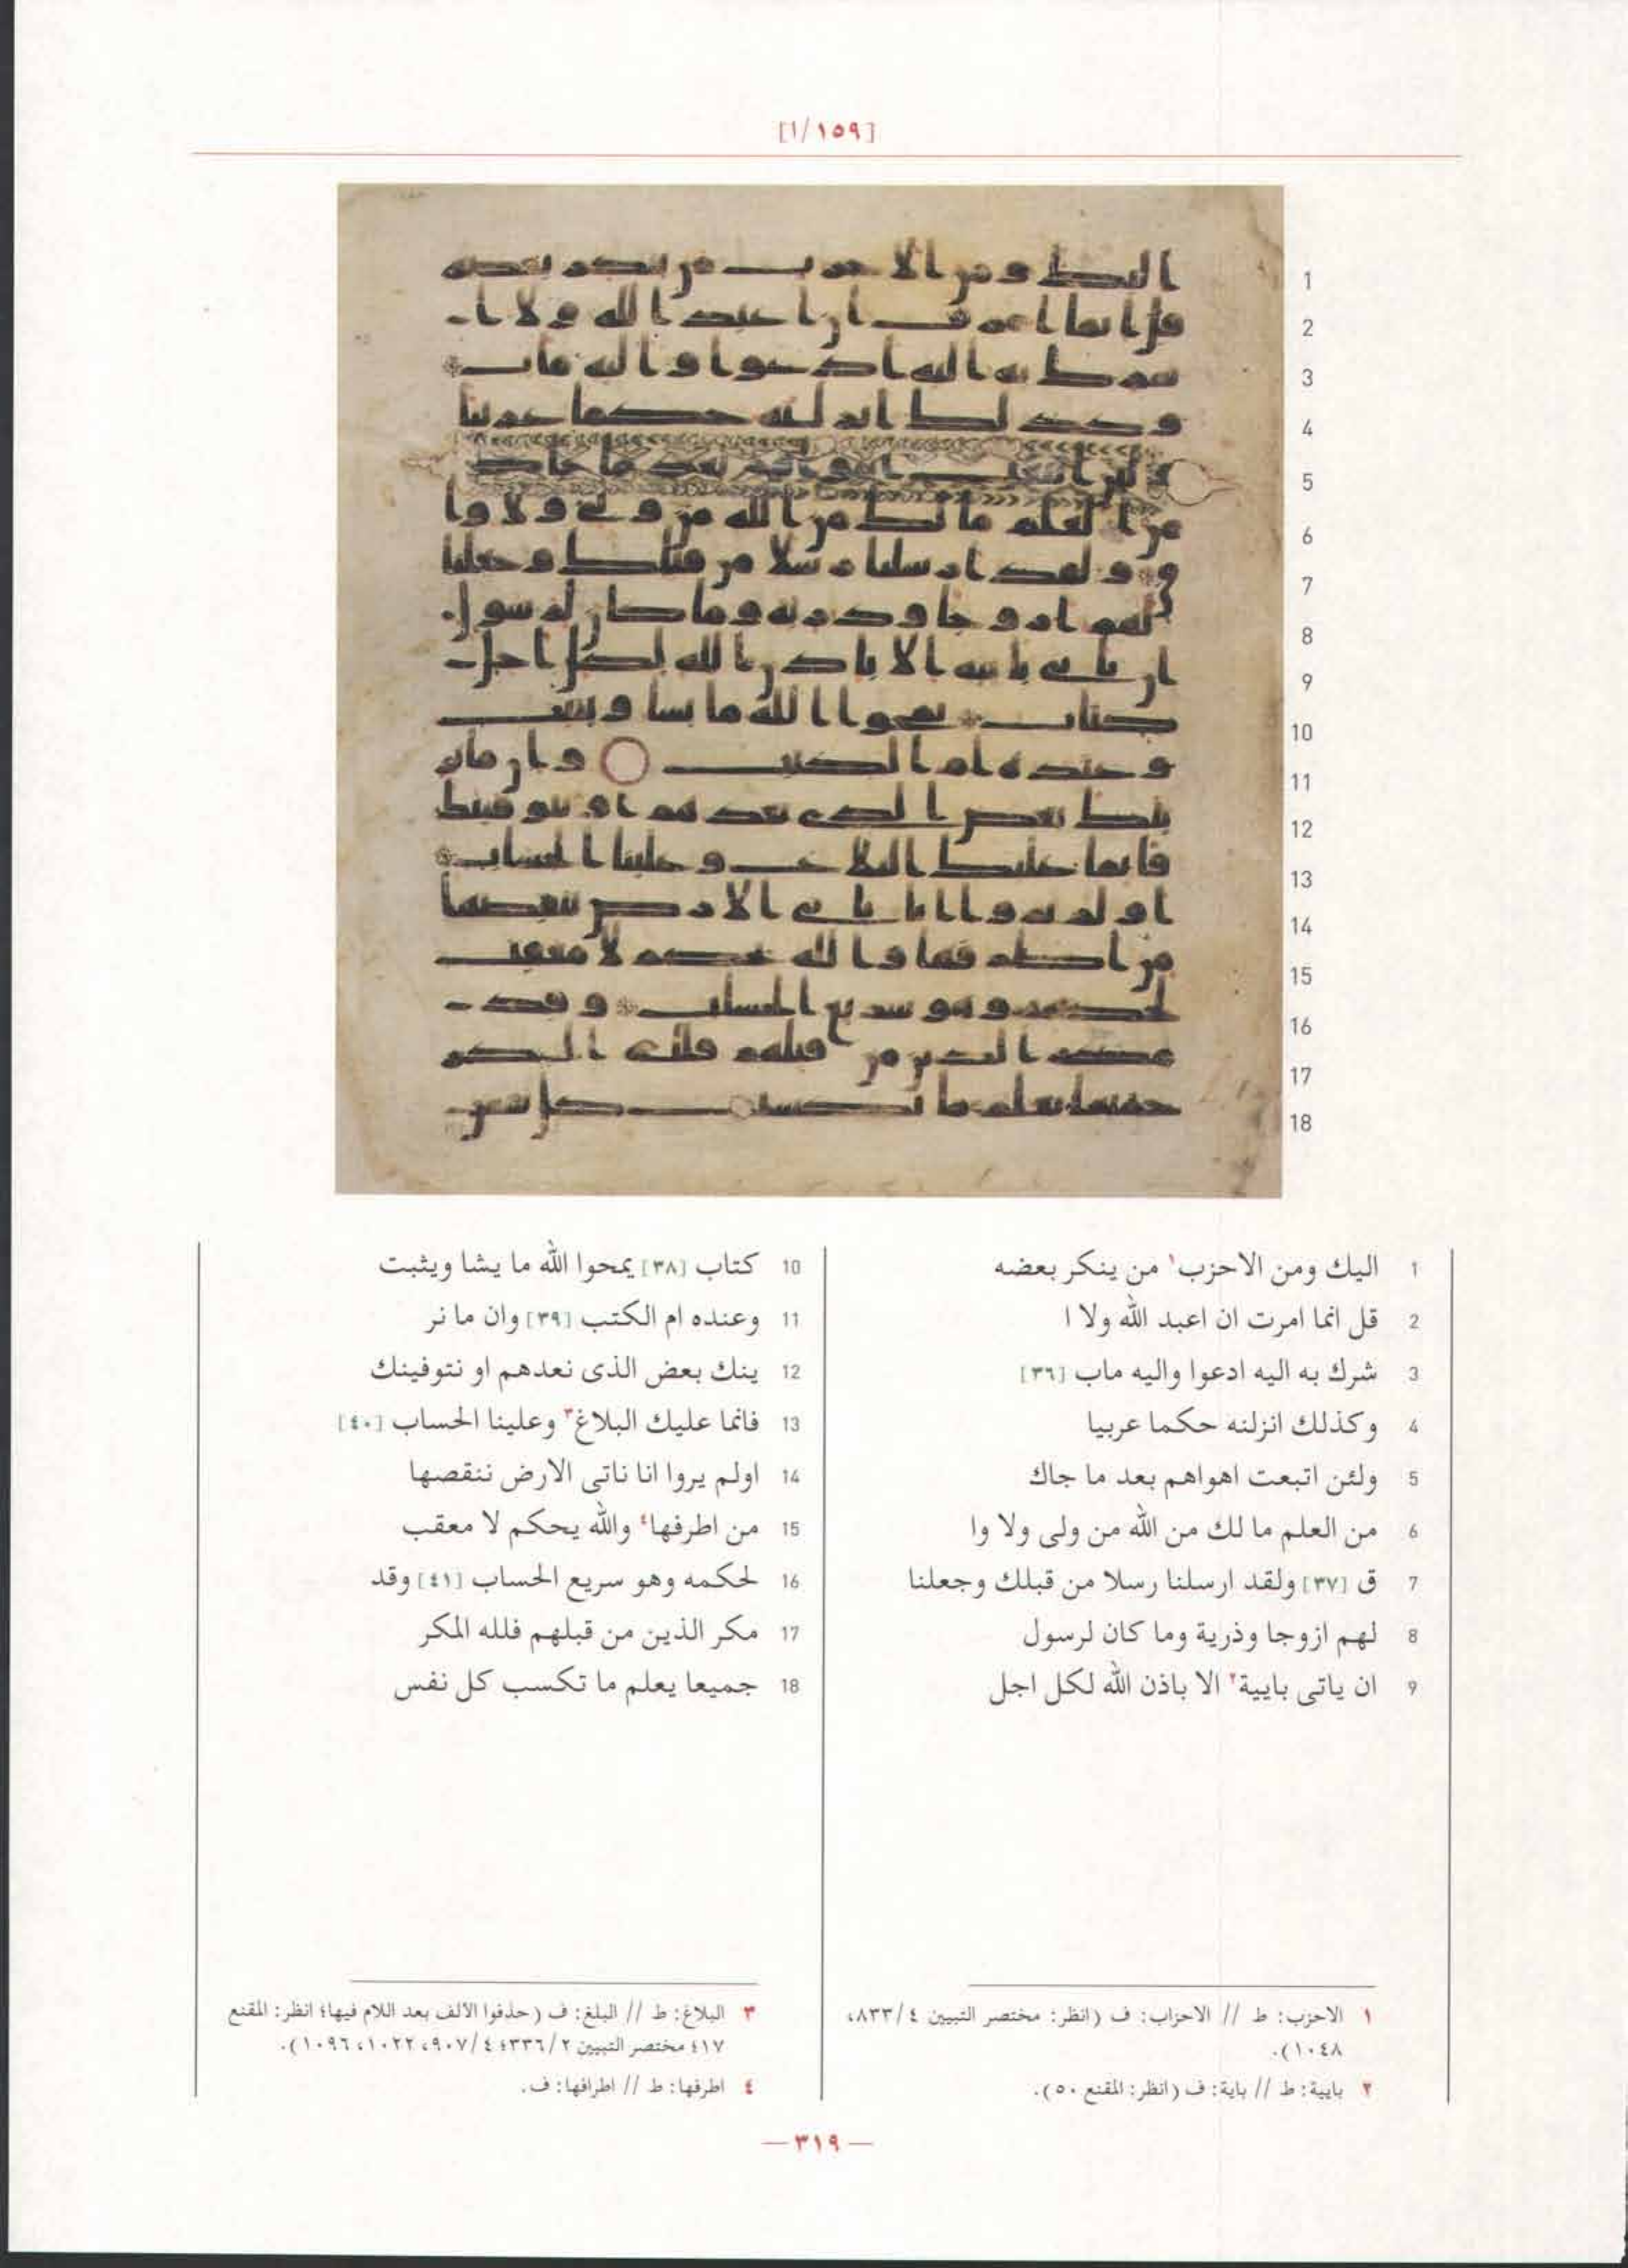 [١/١٥٩]
1 اليك ومن الاحزب١ من ينكر بعضه
2 قل انما امرت ان اعبد الله ولا ا
3 شرك به اليه ادعوا واليه ماب [٣٦]
4 وكذلك انزلنه حكما عربيا
5 ولئن اتبعت اهواهم بعد ما جاك
6 من العلم ما لك من الله من ولى ولا وا
7 ق [٣٧] ولقد ارسلنا رسلا من قبلك وجعلنا
8 لهم ازوجا وذرية وما كان لرسول
9 ان ياتى بايية٢ الا باذن الله لكل اجل
10 كتاب [٣٨] يمحوا الله ما يشا ويثبت
11 وعنده ام الكتب [٣٩] وان ما نر
12 ينك بعض الذى نعدهم او نتوفينك
13 فانما عليك البلاغ٣ وعلينا الحساب [٤٠]
14 اولم يروا انا ناتى الارض ننقصها
15 من اطرفها٤ والله يحكم لا معقب
16 لحكمه وهو سريع الحساب [٤١] وقد
17 مكر الذين من قبلهم فلله المكر
18 جميعا يعلم ما تكسب كل نفس
١ الاحزب: ط // الاحزاب: ف (انظر: مختصر التبيين ٤/٨٣٣،
١٠٤٨).
٢ بايية: ط // باية: ف (انظر: المقنع ٥٠).
٣ البلاغ: ط // البلغ: ف (حذفوا الألف بعد اللام فيها؛ انظر: المقنع
٤١٧؛ مختصر التبيين ٢/٣٣٦؛ ٤/٩٠٧، ١٠٢٢، ١٠٩٦).
٤ اطرفها: ط // اطرافها: ف.
— ٣١٩ —